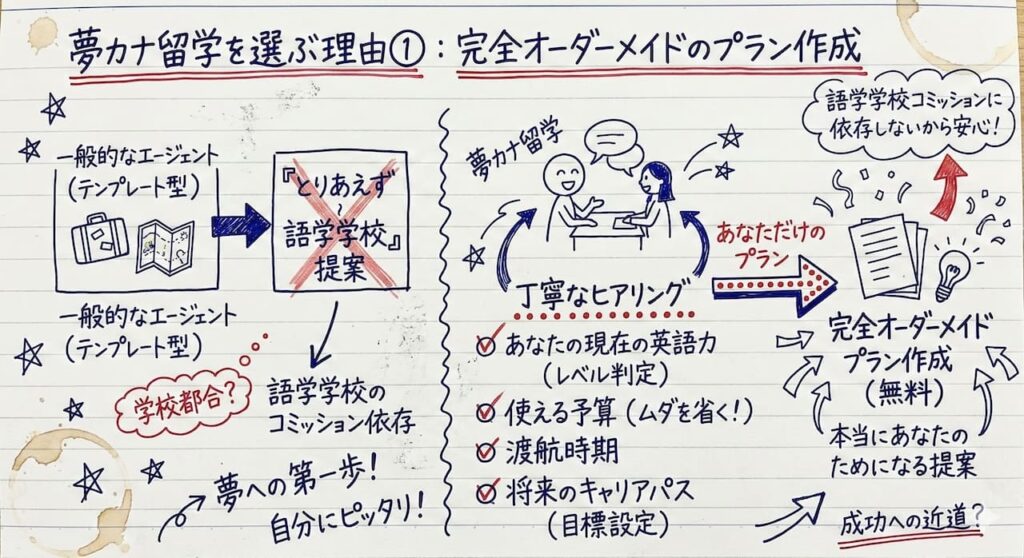 夢カナ留学を選ぶ理由①：完全オーダーメイドのプラン作成
一般的なエージェント
(テンプレート型)
『とりあえず
~
語学学校』
提案
一般的なエージェント
(テンプレート型)
学校都合?
語学学校の
コミッション依存
夢への第一歩!
自分にピッタリ!
夢カナ留学
丁寧なヒアリング
あなたの現在の英語力
(レベル判定)
使える予算 (ムダを省く!)
渡航時期
将来のキャリアパス
(目標設定)
あなただけの
プラン
語学学校コミッションに
依存しないから安心!
完全オーダーメイド
プラン作成
(無料)
本当にあなたの
ためになる提案
成功への近道?